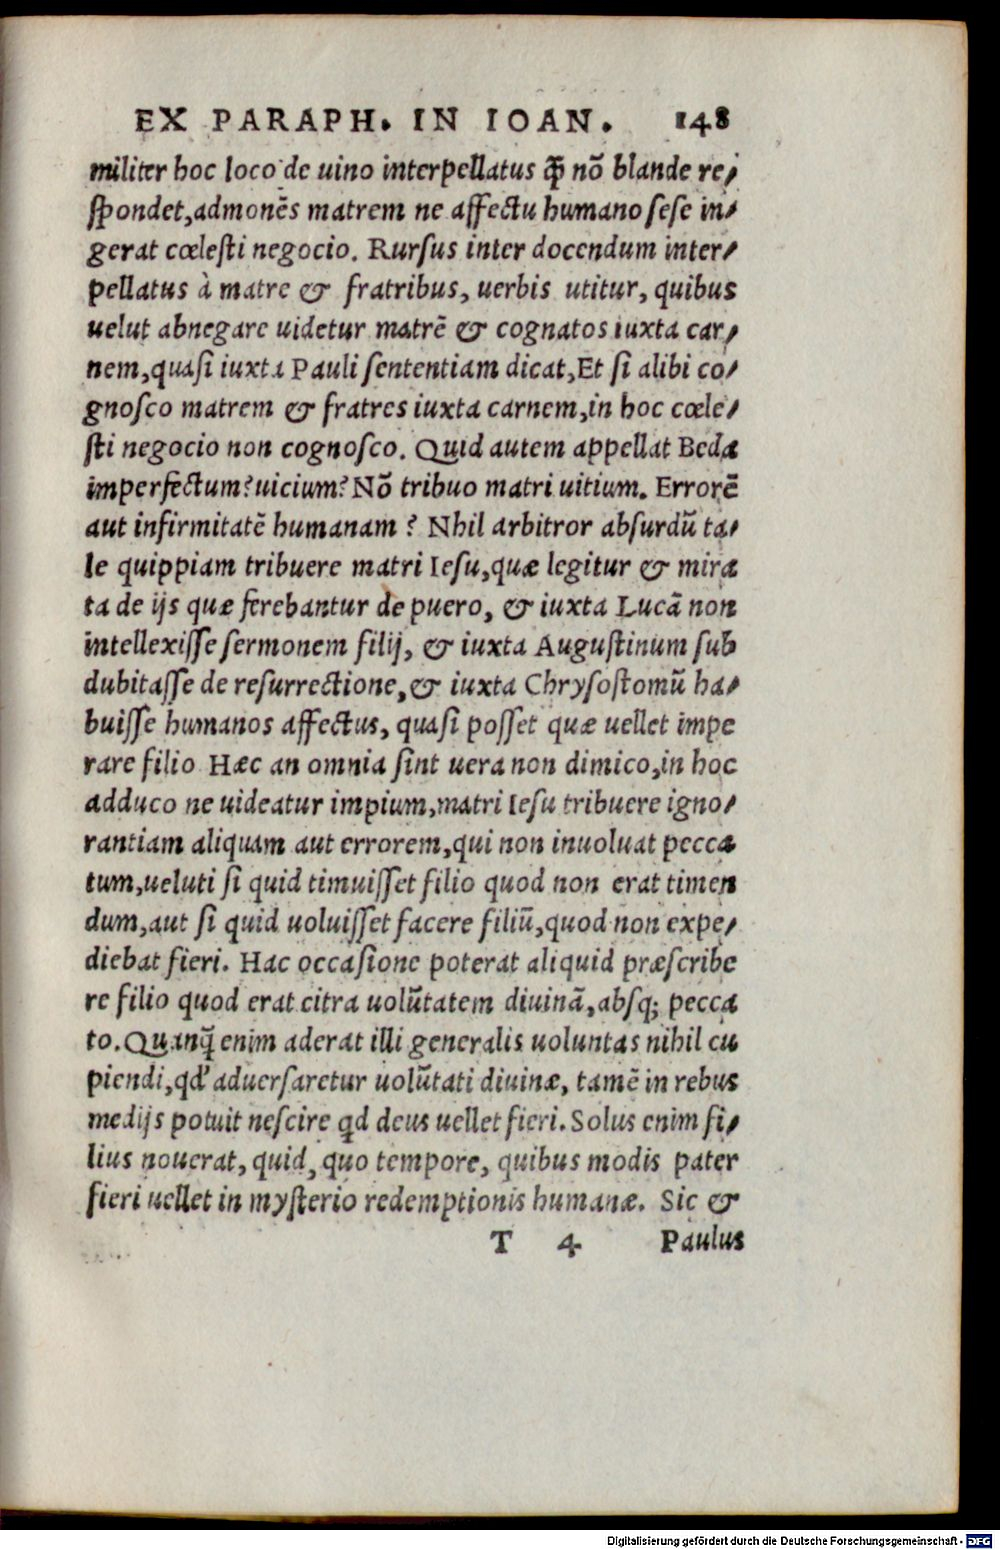 EX PARAPH. IN IOAN. 148
militer hoc loco de uino interpellatus ꝙ̃ nõ blande re/
spondet,admonẽs matrem ne affectu humano sese in/
gerat cœlesti negocio. Rursus inter docendum inter/
pellatus à matre & fratribus, uerbis utitur, quibus
uelut abnegare uidetur matrẽ & cognatos iuxta car/
nem,quasi iuxta Pauli sententiam dicat,Et si alibi co/
gnosco matrem & fratres iuxta carnem,in hoc cœle/
sti negocio non cognosco. Quid autem appellat Beda
imperfectum?uicium?Nõ tribuo matri uitium. Errorẽ
aut infirmitatẽ humanam ? Nhil arbitror absurdũ ta/
le quippiam tribuere matri Iesu,quæ legitur & mira
ta de ijs quæ ferebantur de puero, & iuxta Lucã non
intellexisse sermonem filij, & iuxta Augustinum sub
dubitasse de resurrectione,& iuxta Chrysostomũ ha/
buisse humanos affectus, quasi posset quæ uellet impe
rare filio Hæc an omnia sint uera non dimico,in hoc
adduco ne uideatur impium,matri Iesu tribuere igno/
rantiam aliquam aut errorem,qui non inuoluat pecca
tum,ueluti si quid timuisset filio quod non erat timen
dum,aut si quid uoluisset facere filiũ,quod non expe/
diebat fieri. Hac occasione poterat aliquid præscribe
re filio quod erat citra uolũtatem diuinã,absq; pecca
to.Quanq̃ enim aderat illi generalis uoluntas nihil cu
piendi,qd' aduersaretur uolũtati diuinæ, tamẽ in rebus
medijs potuit nescire qd deus uellet fieri.Solus enim fi/
lius nouerat, quid, quo tempore, quibus modis pater
fieri uellet in mysterio redemptionis humanæ. Sic &
T 4 Paulus
Digitalisierung gefördert durch die Deutsche Forschungsgemeinschaft - DFG